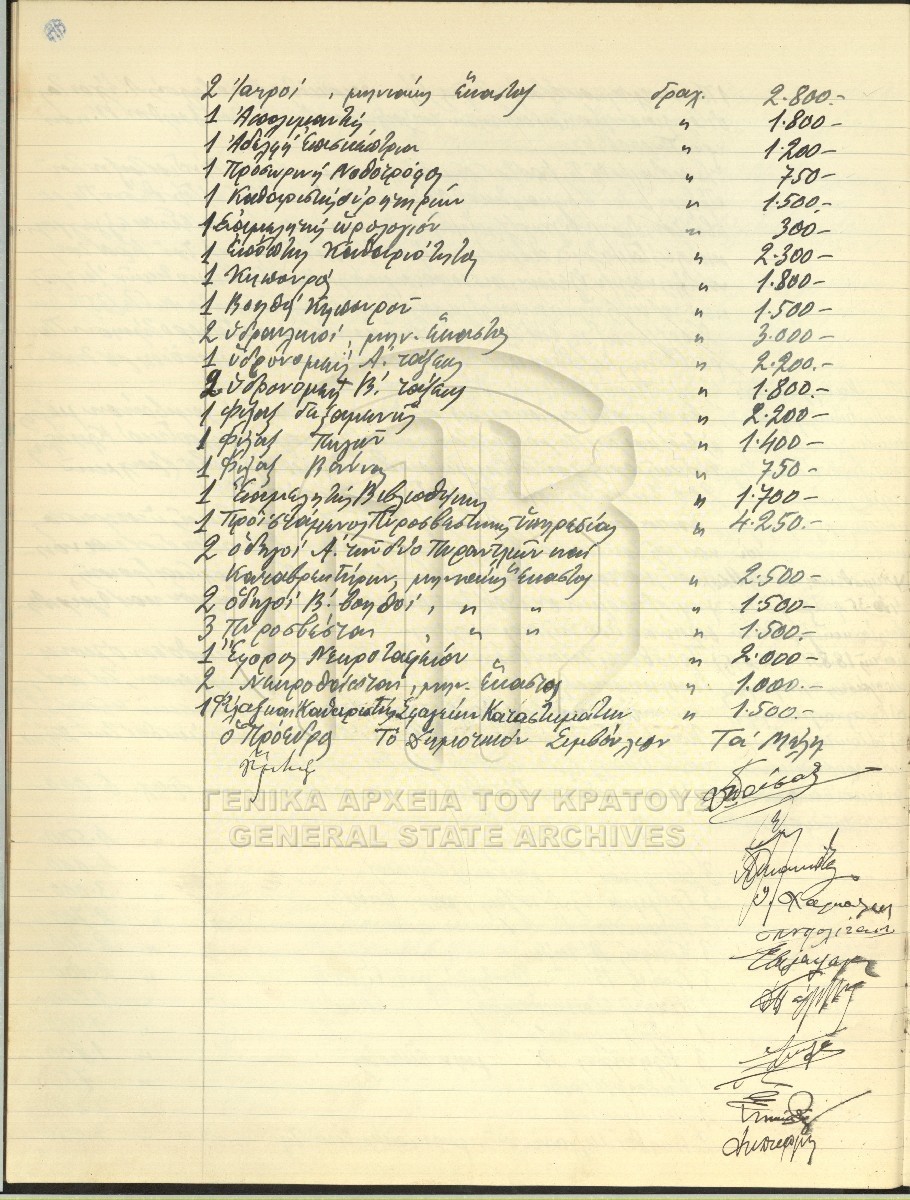 2 Ἰατροί, μηνιαίως ἕκαστος δραχ. 2.800.-
1 Ἀπολυμαντής " 1.800-
1 Ἀδελφή Ἐπισκέπτρια " 1.200-
1 Προσωρινή Νοθοτρόφος " 750-
1 Καθαριστής οὐρητηρίων " 1.500-
1 Ἐπιμελητής ὡρολογίου " 300.-
1 Ἐπόπτης Καθαριότητος " 2.300-
1 Κηπουρός " 1.800-
1 Βοηθός Κηπουροῦ " 1.500-
2 ὑδραυλικοί, μην. ἕκαστος " 3.000-
1 ὑδρονομεύς Α. τάξεως " 2.200.-
2 ὑδρονομεῖς Β. τάξεως " 1.800.-
1 Φύλαξ δεξαμενῆς " 2.200-
1 Φύλαξ Πηγῶν " 1.400-
1 Φύλαξ Βάννας " 750-
1 Ἐπιμελητής Βιβλιοθήκης " 1.700-
1 Προϊστάμενος Πυροσβεστικῆς ὑπηρεσίας " 4.250.-
2 ὁδηγοί Α. τῶν δύο Πυραντλιῶν καί
Καταβρεκτήρων, μηνιαίως ἕκαστος " 2.500-
2 ὁδηγοί Β. βοηθοί, " " " 1.500-
3 Πυροσβέσται, " " " 1.500.-
1 Ἔφορος Νεκροταφείου " 2.000-
2 Νεκροθάπται, μην. ἕκαστος " 1.000.-
1 Φύλαξ καί Καθαριστής Σφαγείων Καταστημάτων " 1.500.-
ὁ Πρόεδρος Τό Δημοτικόν Συμβούλιον Τά Μέλη
ΓΕΝΙΚΑ ΑΡΧΕΙΑ ΤΟΥ ΚΡΑΤΟΥΣ
GENERAL STATE ARCHIVES